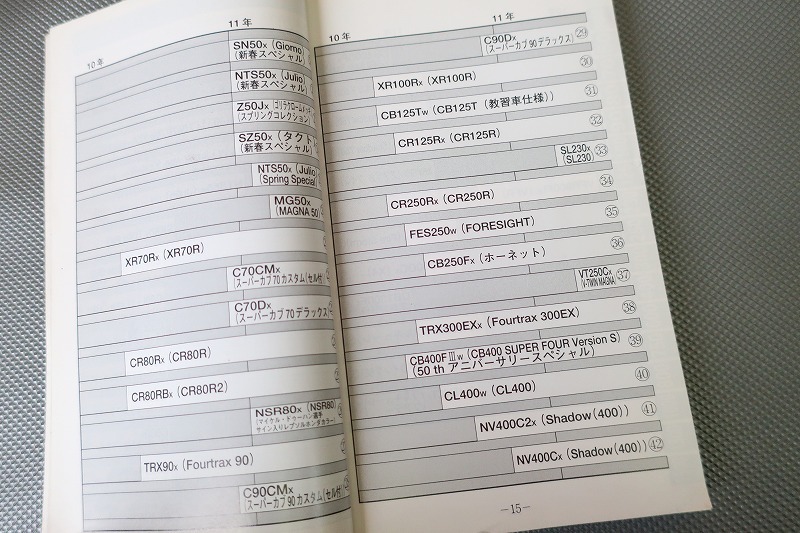 10年
11年
SN50X (Giorno)
(新春スペシャル)
NTS50X (Julio)
(新春スペシャル)
Z50JX
(スプリングコレクション)
SZ50X (タクト)
(新春スペシャル)
NTS50X (Julio)
(Spring Special)
MG50X
(MAGNA 50)
XR70RX (XR70R)
C70CMX
(スーパーカブ70カスタム(セル付))
C70DX
(スーパーカブ70デラックス)
CR80RX (CR80R)
CR80RBX (CR80R2)
NSR80X (NSR80)
(マイケル・ドゥーハン選手
サイン入りレプソルホンダカラー)
TRX90X (Fourtrax 90)
C90CMX
(スーパーカブ90カスタム(セル付))
10年
11年
C90DX
(スーパーカブ90デラックス) ㉙
XR100RX (XR100R) ㉚
CB125TW (CB125T (教習車仕様)) ㉛
CR125RX (CR125R) ㉜
SL230X
(SL230) ㉝
CR250RX (CR250R) ㉞
FES250W (FORESIGHT) ㉟
CB250FX (ホーネット) ㊱
VT250CX
(V-TWIN MAGNA) ㊲
TRX300EXX (Fourtrax 300EX) ㊳
CB400FⅢW (CB400 SUPER FOUR Version S)
(50 th アニバーサリースペシャル) ㊴
CL400W (CL400) ㊵
NV400C2X (Shadow(400)) ㊶
NV400CX (Shadow(400)) ㊷
—15—